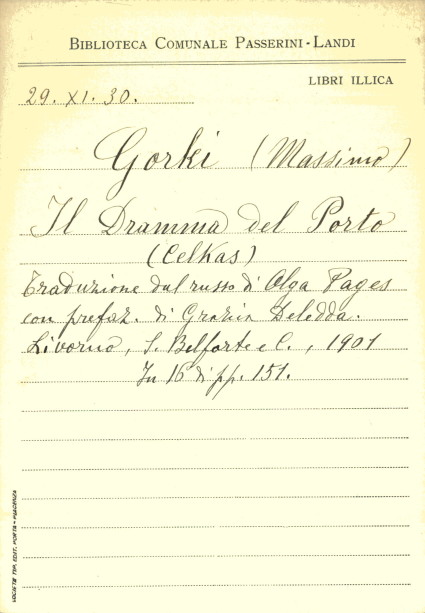 BIBLIOTECA COMUNALE PASSERINI-LANDI
LIBRI ILLICA
29. XI. 30.
Gorki (Massimo)
Il Dramma del Porto
(Celkas)
Traduzione dal russo di Olga Pages
con prefaz. di Grazia Deledda.
Livorno, S. Belforte e C., 1901
In 16 di pp. 151.
SOCIETÀ TIP. EDIT. PORTA - PIACENZA